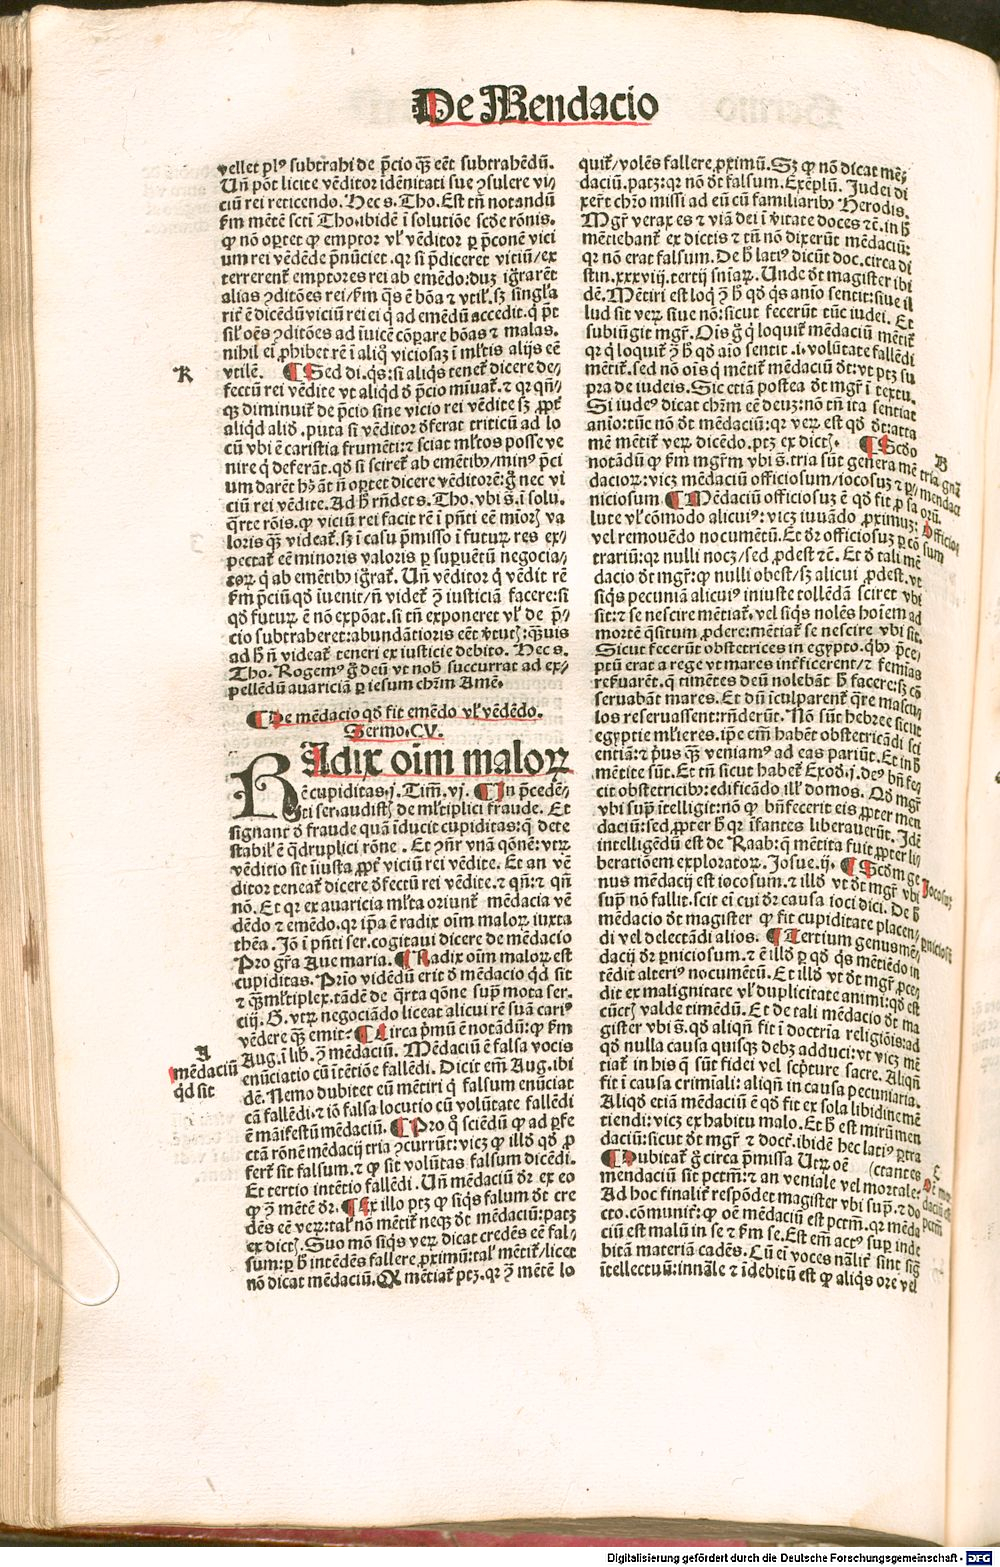 De Mendacio
vellet plꝰ subtrahi de p̄cio qꝫ eēt subtrahēdū.
Un̄ pōt licite vēditor īdēnitati sue ↄsulere vi⸗
ciū rei reticendo. Hec s. Tho. Est tn̄ notandū
ẜm mētē scti Tho. ibidē ī solutiōe scd̄e rōnis.
ꝙ nō oꝑtet ꝙ emptor vl̓ vēditor ꝑ p̄conē vici
um rei vendēde p̄nūciet. qꝛ si p̄diceret viciū/ex
terrerent̄ emptores rei ab emēdo: duꝫ ig̃rarēt
alias ↄditōes rei/ẜm q̄s ē bōa ⁊ vtil̓. sꝫ singl̓a
rit̄ ē dicēdū viciū rei ei q̇ ad emēdū accedit. q̇ p̄t
sil̓ oēs ↄditōes ad īuicē cōꝑare bōas ⁊ malas.
nihil ei ꝓhibet rē ī aliq̊ viciosaꝫ ī ml̓tis alijs eē
K
vtilē. ¶ Sed di. q̄s: si aliqs tenet̄ dicere de⸗
fectū rei vēdite vt aliqd̓ d̓ p̄cio mīuat̄. ⁊ qꝛ qn̄⸗
qꝫ diminuit̄ de p̄cio sine vicio rei vēdite sꝫ ꝓpt̄
aliqd̓ aliđ. puta si vēditor d̓ferat triticū ad lo
cū vbi ē caristia frumēti: ⁊ sciat ml̓tos posse ve
nire q̇ deferāt. qđ si sciret̄ ab emētibꝰ/minꝰ p̄ci
um darēt hꝫ āt n̄ oꝑtet dicere vēditorē: g̊ nec vi
ciū rei vēdite. Ad h̓ rn̄det s. Tho. vbi s̄. ī solu.
q̄rte rōis. ꝙ viciū rei facit rē ī pn̄ti eē mīorꝭ va
loris qꝫ videat̄. sꝫ ī casu p̄misso ī futuꝝ res ex⸗
pectat̄ eē minoris valoris ꝑ suꝑuētū negocia⸗
toꝝ q̇ ab emētibꝰ ig̃rat̄. Un̄ vēditor q̇ vēdit rē
ẜm p̄ciū qđ īuenit/n̄ videt̄ ↄ̄ iusticiā facere: si
qđ futuꝝ ē nō expōat. si tn̄ exponeret vl̓ de p̄⸗
cio subtraheret: abundātioris eēt v̓tutꝭ: qꝫuis
ad h̓ n̄ videat̄ teneri ex iusticie debito. Hec s.
Tho. Rogemꝰ g̊ deū vt nob̓ succurrat ad ex⸗
pellēdū auariciā ꝑ iesum chr̄m Amē.
¶ De mēdacio qđ fit emēdo vl̓ vēdēdo.
Sermo. CV.
RAdix oīm maloꝝ
ē cupiditas. j. Tim̄. vj. ¶ In p̄cedē⸗
ti ser. audistꝭ de ml̓tiplici fraude. Et
signant̄ d̓ fraude quā īducit cupiditas: q̄ dete
stabil̓ ē q̈druplici rōne. Et ꝯn̄r vnā qōnē: vtꝝ
vēditio sit īiusta ꝓpt̄ viciū rei vēdite. Et an vē
ditor teneat̄ dicere d̓fectū rei vēdite. ⁊ qn̄: ⁊ qn̄
nō. Et qꝛ ex auaricia ml̓ta oriunt̄ mēdacia vē
dēdo ⁊ emēdo. qꝛ ip̄a ē radix oīm maloꝝ iuxta
thēa. Iō ī pn̄ti ser. cogitaui dicere de mēdacio
Pro gr̄a Aue maria. ¶ Radix oīm maloꝝ est
cupiditas. Prīo vidēdū erit d̓ mēdacio qđ sit
⁊ qꝫml̓tiplex. tādē de q̄rta qōne supͣ mota ser.
ciij. S. vtꝝ negociādo liceat alicui rē suā cariꝰ
vēdere qꝫ emit: ¶ Circa pͥmū ē notādū: ꝙ ẜm
A
mēdaciū
qđ sit
Aug. ī lib. ↄ̄ mēdaciū. Mēdaciū ē falsa vocis
enūciatio cū ītētiōe fallēdi. Dicit em̄ Aug. ibi
dē. Nemo dubitet eū mētiri q̇ falsum enūciat
cā fallēdi. ⁊ iō falsa locutio cū volūtate fallēdi
ē māifestū mēdaciū. ¶ Pro q̊ sciēdū ꝙ ad ꝑfe
ctā rōnē mēdacij tria ↄcurrūt: vicꝫ ꝙ illđ qđ ꝓ
fert̄ sit falsum. ⁊ ꝙ sit volūtas falsum dicēdi.
Et tertio intētio fallēdi. Un̄ mēdaciū dr̄ ex eo
ꝙ ↄ̄ mētē dr̄. ¶ Ex illo ptꝫ ꝙ siqs falsum dt̄ cre
dēs eē veꝝ: tal̓ nō mētit̄ neqꝫ dt̄ mēdaciū: patꝫ
ex dictꝭ. Suo mō siqs veꝝ dicat credēs eē fal⸗
sum: ꝑ h̓ intēdēs fallere ꝓximū: tal̓ mētit̄/licet
nō dicat mēdaciū. Q̈ mētiat̄ ptꝫ. qꝛ ↄ̄ mētē lo
quit̄/volēs fallere ꝓximū. Sꝫ ꝙ nō dicat mē⸗
daciū. patꝫ: qꝛ nō dt̄ falsum. Exēplū. Judei di
xer̄t chr̄o missi ad eū cū familiaribꝰ Herodis.
Mgr̄ verax es ⁊ viā dei ī v̓itate doces ⁊c̄. in h̓
mētiebant̄ ex dictis ⁊ tn̄ nō dixerūt mēdaciū:
qꝛ nō erat falsum. De h̓ latiꝰ dicūt doc. circa di
stin. xxxviij. tertij sn̄iaꝝ. Unde dt̄ magister ibi
dē. Mētiri est loq̇ ↄ̄ h̓ qđ q̇s anīo sentit: siue il
lud sit veꝝ siue nō: sicut fecerūt tūc iudei. Et
subiūgit mgr̄. Ois g̊ q̇ loquit̄ mēdaciū mētit̄
qꝛ q̇ loquit̄ ↄ̄ h̓ qđ aīo sentit. i. volūtate fallēdi
mētit̄. sed nō ois q̇ mētit̄ mēdaciū dt̄: vt ptꝫ su
pra de iudeis. Sic etiā postea dt̄ mgr̄ ī textu.
Si iudeꝰ dicat chr̄m eē deuꝫ: nō tn̄ ita sentiat
anīo: tūc nō dt̄ mēdaciū: qꝛ veꝝ est qđ dt̄: atta
mē mētit̄ veꝝ dicēdo. ptꝫ ex dictꝭ. ¶ Scd̄o
B
tria gn̄a
mendaci
oꝝ.
notādū ꝙ ẜm mgr̄m vbi s̄. tria sūt genera mē
dacioꝝ: vicꝫ mēdaciū officiosum/iocosuꝫ ⁊ ꝑ⸗
niciosum ¶ Mēdaciū officiosuꝫ ē qđ fit ꝓ sa
Officio
sum
lute vl̓ cōmodo alicuiꝰ: vicꝫ iuuādo ꝓximuꝫ:
vel remouēdo nocumētū. Et dr̄ officiosuꝫ ꝑ cō
trariū: qꝛ nulli nocꝫ/sed ꝓdest ⁊c̄. Et d̓ tali mē
dacio dt̄ mgr̄: ꝙ nulli obest/sꝫ alicui ꝓdest. vt
siqs pecuniā alicuiꝰ iniuste tollēdā sciret vbi
sit: ⁊ se nescire mētiat̄. vel siqs nolēs hoīem ad
mortē q̄situm ꝓdere: mētiat̄ se nescire vbi sit.
Sicut fecerūt obstetrices in egypto. qbꝰ p̄ce⸗
ptū erat a rege vt mares interficerent/⁊ femīas
reẜuarēt. q̄ timētes deū nolebāt h̓ facere: sꝫ cō
seruabāt mares. Et dū īculparent̄ q̄re mascu
los reseruassent: rn̄derūt. Nō sūt hebree sicut
egyptie ml̓ieres. ip̄e em̄ habēt obstetricādi sci
entiā: ⁊ pͥus qꝫ veniamꝰ ad eas pariūt. Et in h̓
mētite sūt. Et tn̄ sicut habet̄ Exod̓. j. deꝰ bn̄ fe
cit obstetricibꝰ: edificādo ill̓ domos. Qđ mgr̄
vbi supͣ ītelligit: nō ꝙ bn̄fecerit eis ꝓpter men
daciū: sed ꝓpter h̓ qꝛ īfantes liberauerūt. Idē
intelligēdū est de Raab: q̄ mētita fuit ꝓpter li⸗
berationem exploratoꝝ. Josue. ij. ¶ Scd̄m ge
Iocosuꝫ
nus mēdacij est iocosum. ⁊ illđ vt dt̄ mgr̄ vbi
supͣ nō fallit. scit ei cui dr̄ causa ioci dici. De h̓
mēdacio dt̄ magister ꝙ fit cupiditate placen⸗
ꝑniciosū
di vel delectādi alios. ¶ Tertium genus mē⸗
dacij dr̄ ꝑniciosum. ⁊ ē illđ ꝑ qđ q̇s mētiēdo in
tēdit alteriꝰ nocumētū. Et illđ vt dt̄ mgr̄ ꝓce⸗
dit ex malignitate vl̓ duplicitate animi: qđ est
cūctꝭ valde timēdū. Et de tali mēdacio dt̄ ma
gister vbi s̄. qđ aliqn̄ fit ī doctrīa religiōis: ad
qđ nulla causa quisqꝫ debꝫ adduci: vt vicꝫ mē
tiat̄ in his q̄ sūt fidei vel sc̓pture sacre. Aliqn̄
fit ī causa crimīali: aliqn̄ in causa pecuniaria.
Aliqđ etiā mēdaciū ē qđ fit ex sola libidine mē
tiendi: vicꝫ ex habitu malo. Et h̓ est mirū men
daciū: sicut dt̄ mgr̄ ⁊ doct̄. ibidē hec latiꝰ ꝑtra
C
¶ Dubitat̄ g̊ circa p̄missa Utꝝ oē (ctantes
Oē men
daciū est
pctm̄
mendaciū sit pctm̄: ⁊ an veniale vel mortale:
Ad hoc finalit̄ respōdet magister vbi supͣ. ⁊ do
cto. cōmunit̄: ꝙ oē mēdaciū est pctm̄. qꝛ mēda
ciū est malū in se ⁊ ẜm se. Est em̄ actꝰ suꝑ inde
bitā materiā cadēs. Cū ei voces nāl̓it̄ sint sig̃
ītellectuū: innāle ⁊ īdebitū est ꝙ aliqs ore vel
Digitalisierung gefördert durch die Deutsche Forschungsgemeinschaft - DFG